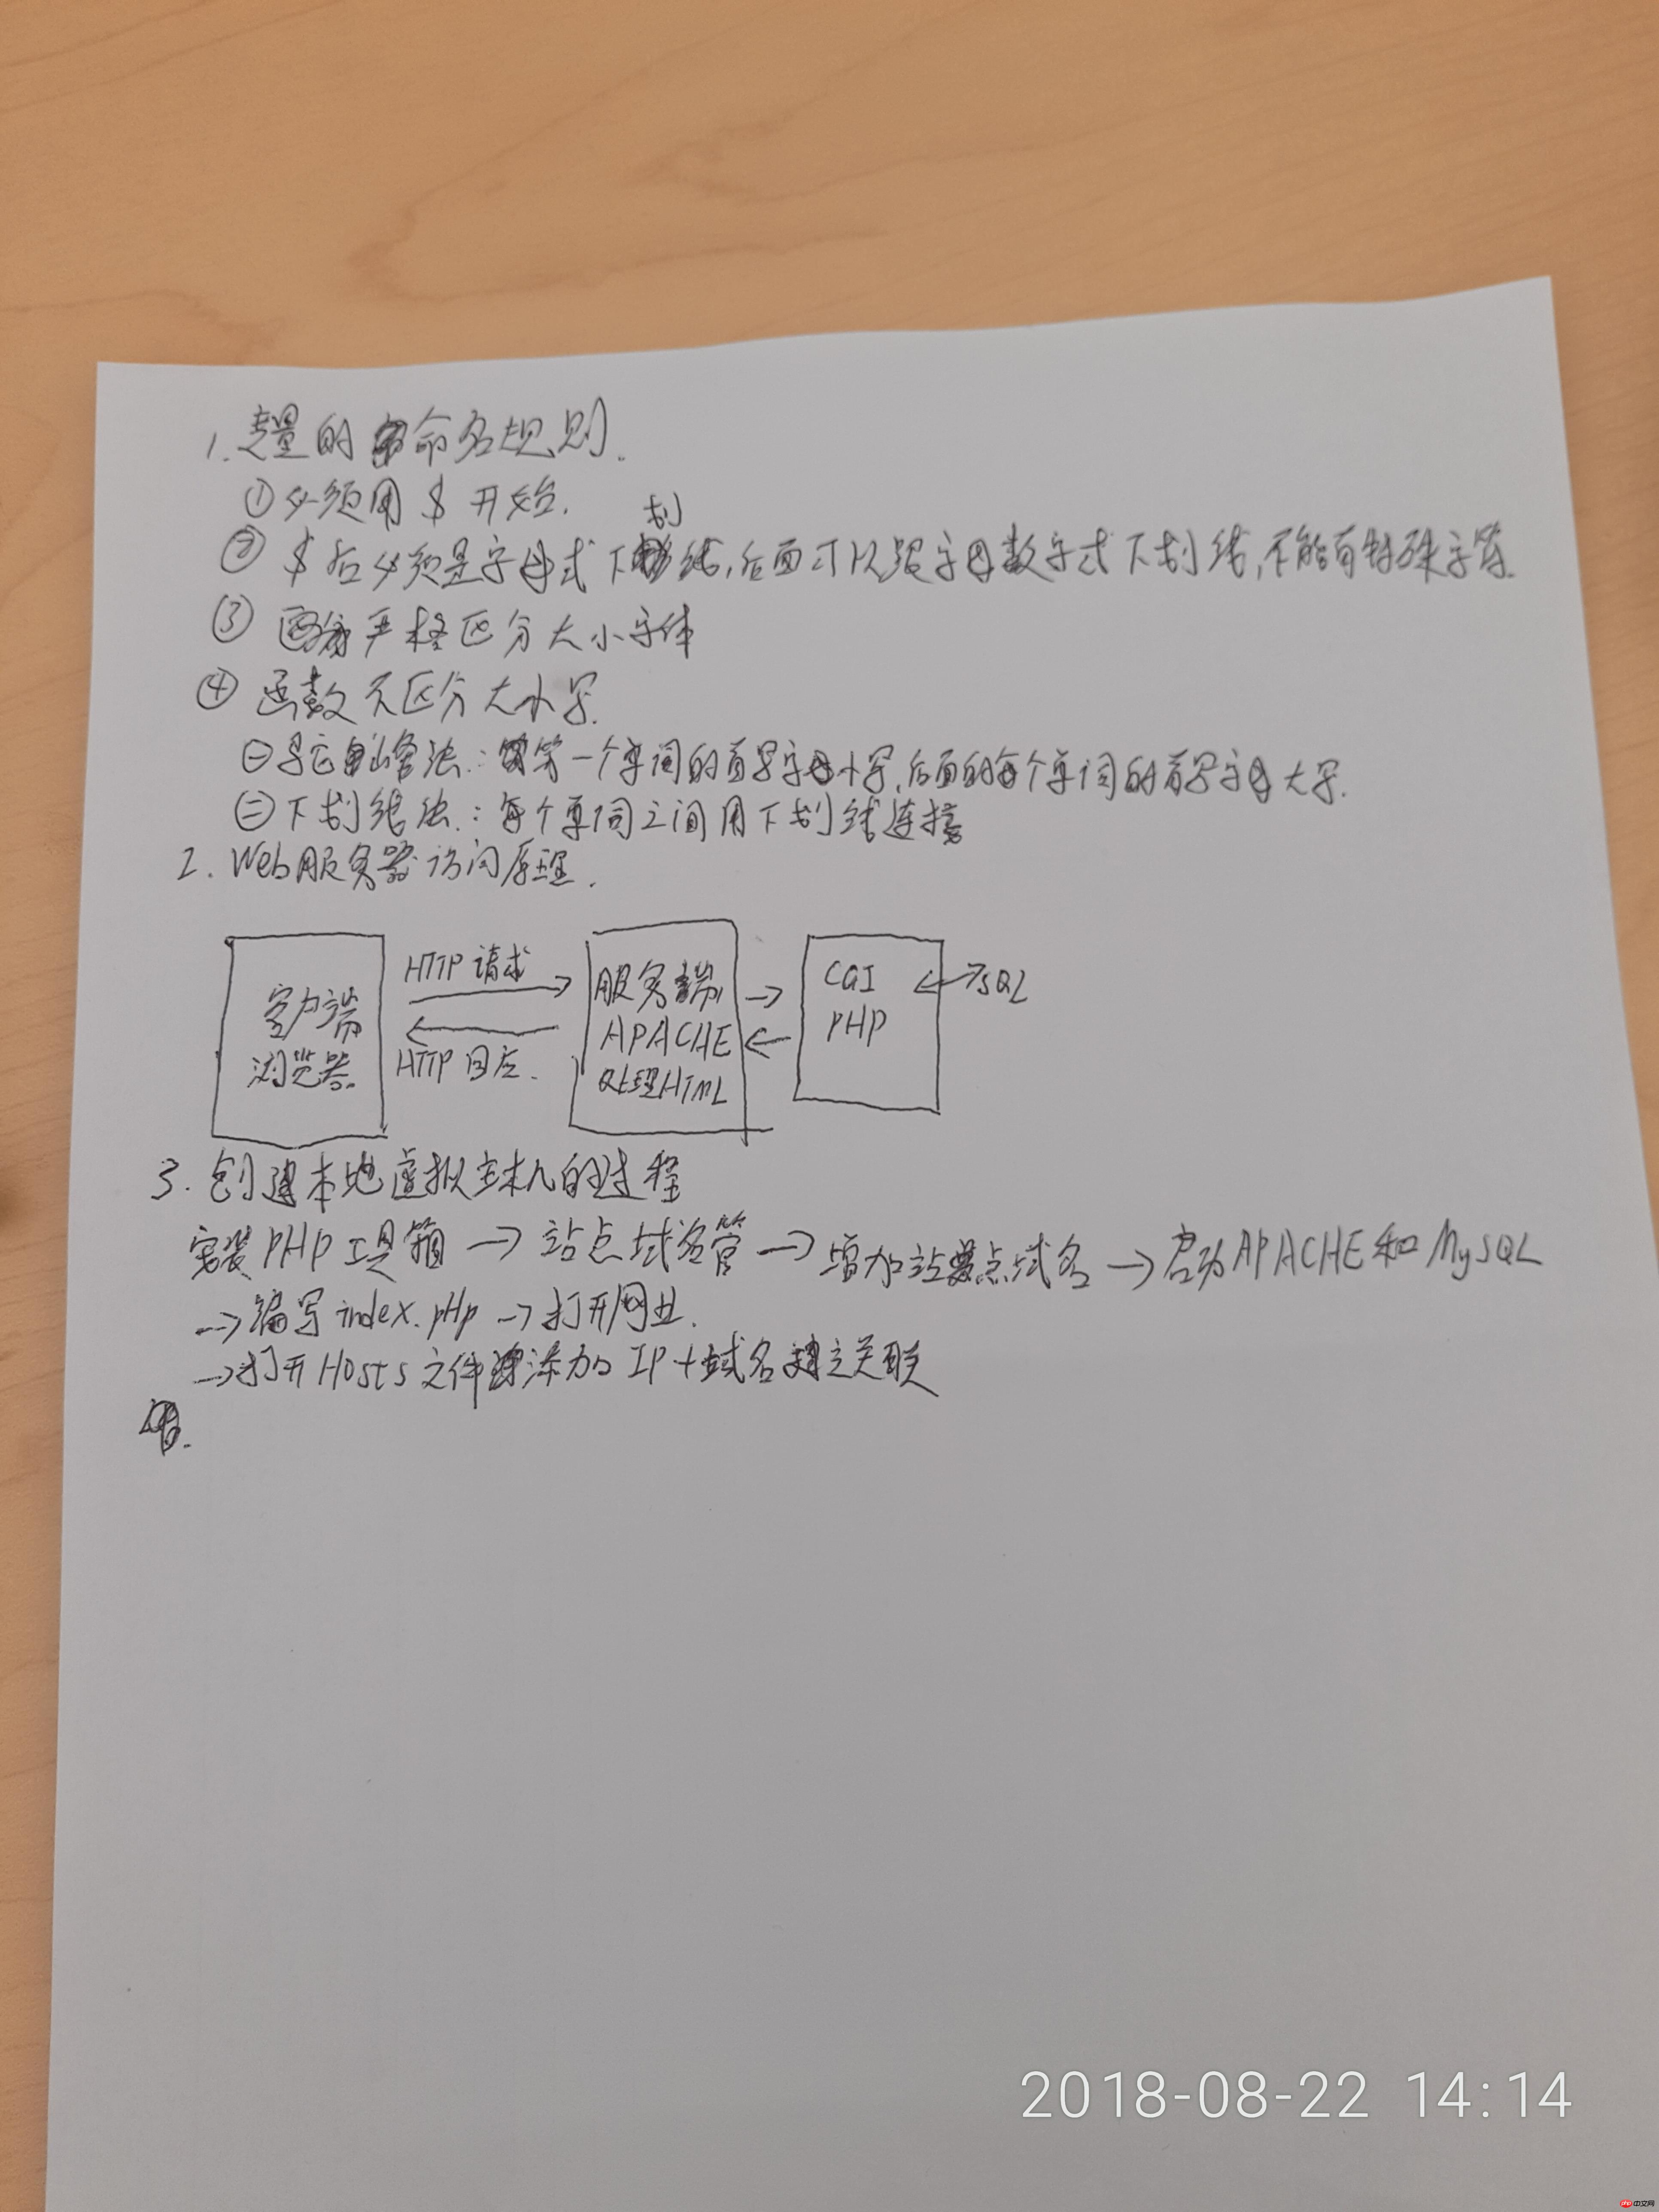 1. 变量的命名规则.
① 必须用 $ 开始.
② $ 后必须是字母或下划线,后面可以跟字母数字或下划线,不能有特殊字符.
③ 严格区分大小字体
④ 函数不区分大小写.
㊀ 驼峰法:第一个单词的首字母小写,后面的每个单词的首字母大写.
㊁ 下划线法:每个单词之间用下划线连接
2. Web服务器访问原理.
客户端 浏览器
HTTP 请求
HTTP 回应.
服务端 APACHE 处理HTML
CGI PHP
SQL
3. 创建本地虚拟主机的过程
安装PHP工具箱 → 站点域名管 → 增加站点域名 → 启动APACHE和MySQL
→编写index.pHp → 打开网址.
→打开Hosts文件添加IP+域名建立关联
2018-08-22 14:14
php中文网